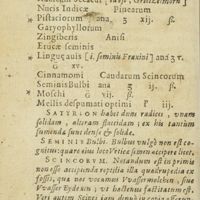 Nucis Indicæ Pinearum
Pistaciorum ana ʒ xij. ß.
Garyophyllorum
Zingiberis Anisi
Erucæ seminis
Linguæ auis [i. seminis Fraxini] ana ʒ v.
G xv.
Cinnamomi Caudarum Scincorum
Seminis Bulbi ana ʒ ij. ß.
Moschi G vij. ß.
Mellis despumati optimi iij.
SATYRION habet duas radices, unam
solidam, alteram flaccidam; ex his tantum
sumenda sunt dense & solide.
SEMINIS Bulbi. Bulbus vulgò non est co-
gnitus: quare eius loco Urticæ semen debet
SCINCORUM. Notandum est in primis
non esse accipienda reptilia illa quadrupedia
fusca, quæ nos vocamus Wassermolchen, siue
Wasser Eydexen; ut hactenus factitatum est.
Veri autem Scinci iam denuò in copia offerun-